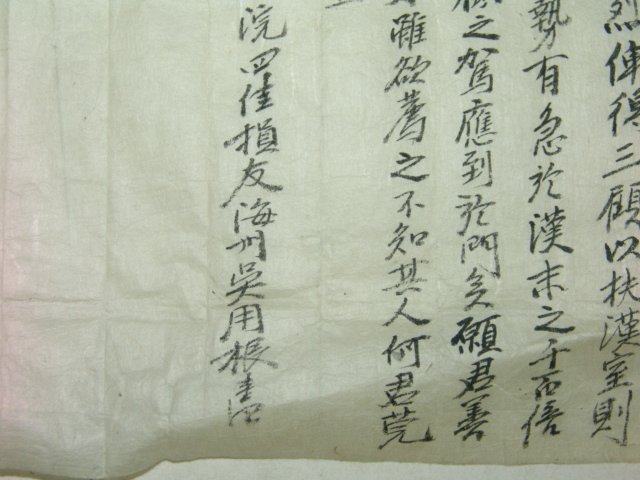 烈俾得三顧以扶漢室則
勢有急於漢末之千百倍
之駕應到於門矣願君善
雖欲薦之不知其人何君荒
浣四佳損友海州吳用根書